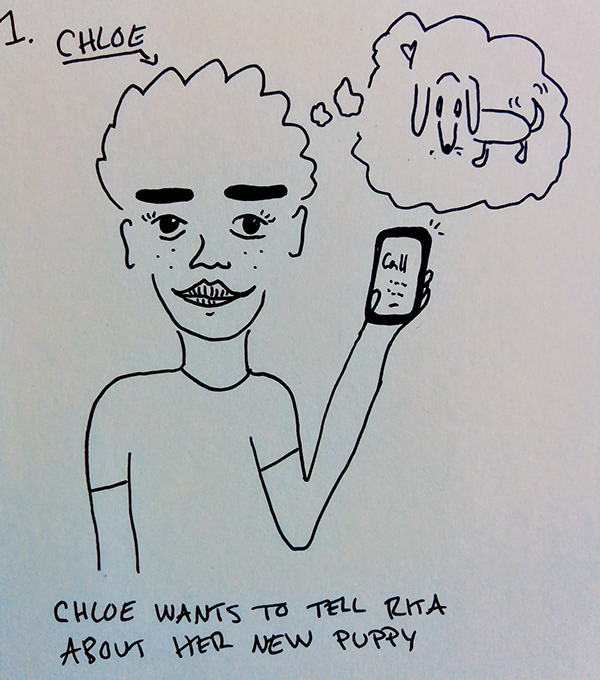 1.
CHLOE
Call
CHLOE WANTS TO TELL RITA
ABOUT HER NEW PUPPY